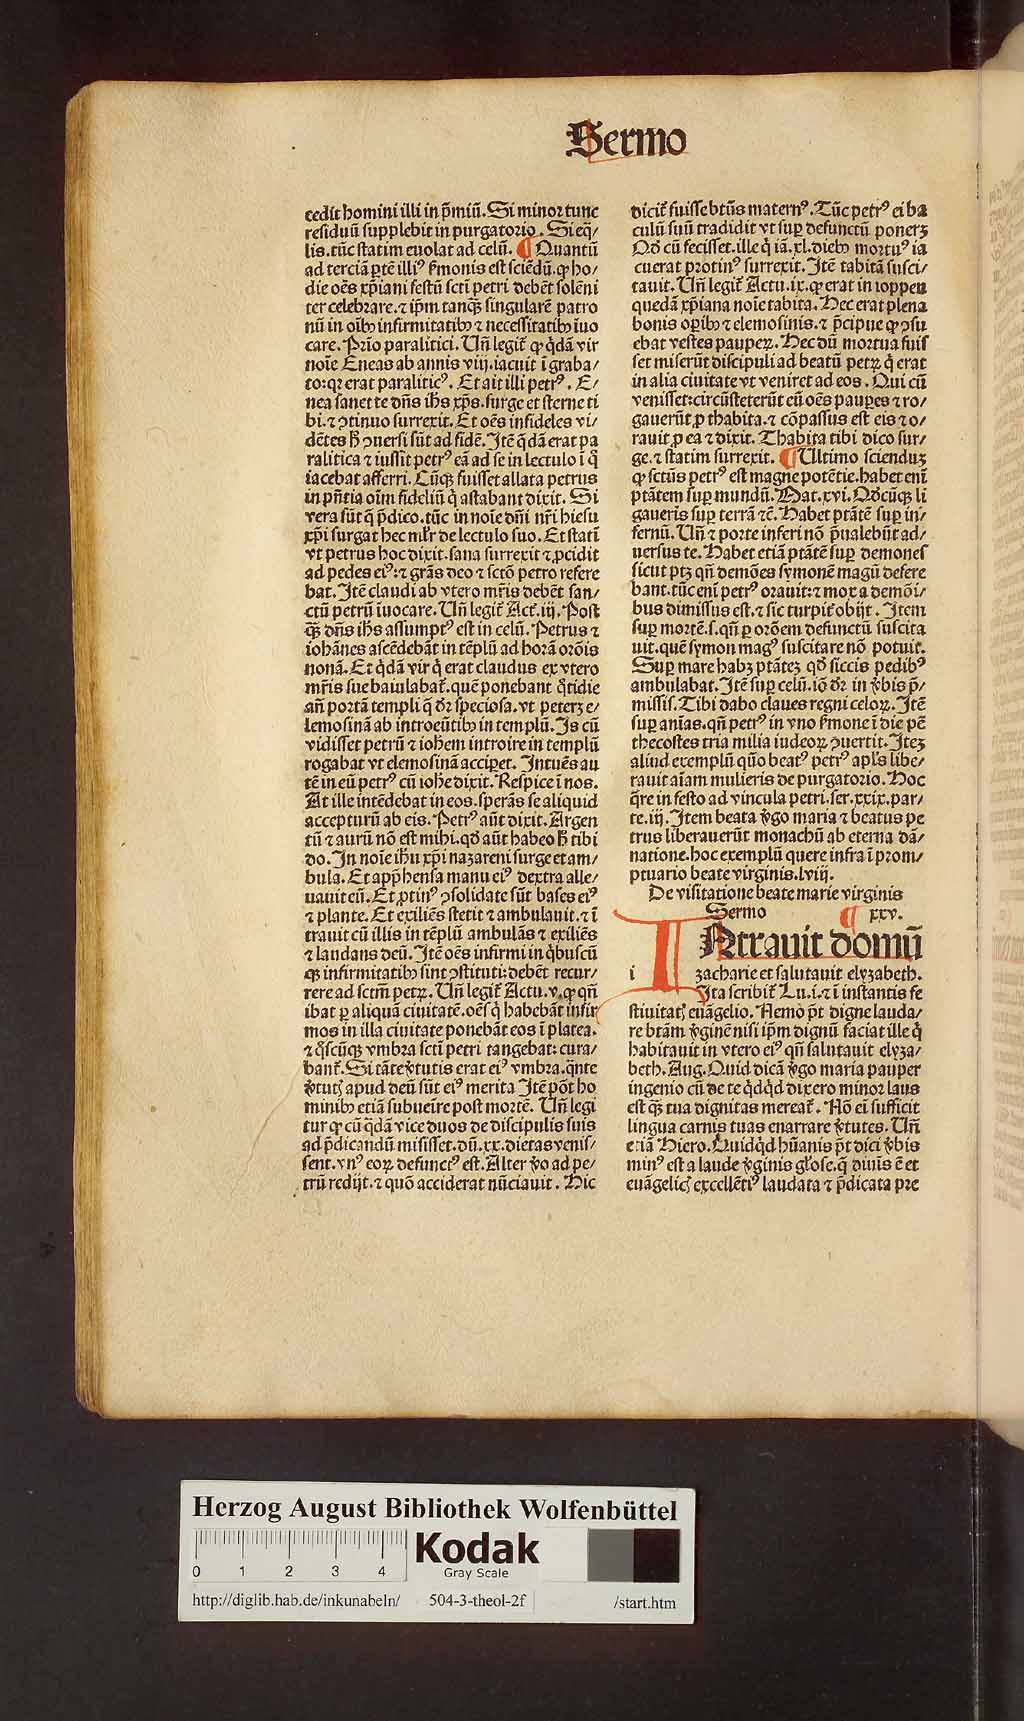 Sermo
cedit homini illi in p̄miū. Si minor tunc
residuū supplebit in purgatorio. Si eq̄/
lis. tūc statim euolat ad celū. ¶ Quantū
ad terciā ꝑtē illiꝰ ẜmonis est sciēdū. ꝙ ho/
die oēs xp̄iani festū scti petri debēt solēni
ter celebrare. ⁊ ip̄m tanqꝫ singularē patro
nū in oībꝫ infirmitatibꝫ ⁊ necessitatibꝫ īuo
care. Prīo paralitici. Uñ legit̄ ꝙ q̇dā vir
noīe Eneas ab annis viij. iacuit ī graba/
to: qꝛ erat paraliticꝰ. Et ait illi petrꝰ. E/
nea sanet te dñs ihs xp̄s. surge et sterne ti
bi. ⁊ ↄtinuo surrexit. Et oēs infideles vi/
dētes ħ ↄuersi sūt ad fidē. Itē q̇dā erat pa
ralitica ⁊ iussit petrꝰ eā ad se in lectulo ī q̄
iacebat afferri. Cūqꝫ fuisset allata petrus
in p̄ntia oīm fideliū q̄ astabant dixit. Si
vera sūt q̄ p̄dico. tūc in noīe dñi nr̄i hiesu
xp̄i surgat hec mlr̄ de lectulo suo. Et stati
vt petrus hoc dixit. sana surrexit ⁊ ꝓcidit
ad pedes eiꝰ: ⁊ grās deo ⁊ sctō petro refere
bat. Itē claudi ab vtero mr̄is debēt san/
ctū petrū īuocare. Uñ legit̄ Act̄. iij. Post
qꝫ dñs ihs assumptꝰ est in celū. Petrus ⁊
iohānes ascēdebāt in tēplū ad horā orōis
nonā. Et q̇dā vir q̇ erat claudus ex vtero
mr̄is sue baiulabat̄. quē ponebant q̇tidie
añ portā templi q̄ dr̄ speciosa. vt peterꝫ e/
lemosinā ab introeūtibꝫ in templū. Is cū
vidisset petrū ⁊ ioħem introire in templū
rogabat vt elemosinā acciꝑet. Intuēs au
tē in eū petrꝰ cū ioħe dixit. Respice ī nos.
At ille intēdebat in eos. sperās se aliquid
accepturū ab eis. Petrꝰ aūt dixit. Argen
tū ⁊ aurū nō est mihi. qd̄ aūt habeo ħ tibi
do. In noīe ihu xp̄i nazareni surge et am/
bula. Et app̄hensa manu eiꝰ dextra alle/
uauit eū. Et ꝓtinꝰ ↄsolidate sūt bases eiꝰ
⁊ plante. Et exiliēs stetit ⁊ ambulauit. ⁊ ī
trauit cū illis in tēplū ambulās ⁊ exiliēs
⁊ laudans deū. Itē oēs infirmi in q̇buscū
qꝫ infirmitatibꝫ sint ↄstituti: debēt recur/
rere ad sctm̄ petꝝ. Uñ legit̄ Actu. v. ꝙ qñ
ibat ꝑ aliquā ciuitatē. oēs q̇ habebāt infir
mos in illa ciuitate ponebāt eos ī platea.
⁊ q̇scūqꝫ vmbra scti petri tangebat: cura/
bant̄. Si tāte v̓tutis erat eiꝰ vmbra. q̄nte
v̓tutꝭ apud deū sūt eiꝰ merita Itē pōt ho
minibꝫ etiā subueīre post mortē. Uñ legi
tur ꝙ cū q̄dā vice duos de discipulis suis
ad p̄dicandū misisset. dū. xx. dietas venis/
sent. vnꝰ eoꝝ defunctꝰ est. Alter v̓o ad pe/
trū redijt. ⁊ quō acciderat nūciauit. Hic
dicit̄ fuisse btūs maternꝰ. Tūc petrꝰ ei ba
culū suū tradidit vt suꝑ defunctū ponerꝫ
Qd̄ cū fecisset. ille q̇ iā. xl. diebꝫ mortuꝰ ia
cuerat protinꝰ surrexit. Itē tabitā susci/
tauit. Uñ legit̄ Actu. ix. ꝙ erat in ioppen
quedā xp̄iana noīe tabita. Hec erat plena
bonis oꝑibꝫ ⁊ elemosinis. ⁊ p̄cipue ꝙ ↄsu
ebat vestes pauperꝝ. Hec dū mortua fuis
set miserūt discipuli ad beatū petꝝ q̇ erat
in alia ciuitate vt veniret ad eos. Qui cū
venisset: circūsteterūt eū oēs pauꝑes ⁊ ro/
gauerūt ꝓ thabita. ⁊ cōpassus est eis ⁊ o/
rauit ꝓ ea ⁊ dixit. Thabita tibi dico sur/
ge. ⁊ statim surrexit. ¶ Ultimo scienduꝫ
ꝙ sctūs petrꝰ est magne potētie. habet enī
ptātem suꝑ mundū. Mat. xvi. Qd̄cūqꝫ li
gaueris suꝑ terrā ⁊c̄. Habet ptātē suꝑ in/
fernū. Uñ ⁊ porte inferi nō p̄ualebūt ad/
uersus te. Habet etiā ptātē suꝑ demones
sicut ptꝫ qñ demōes symonē magū defere
bant. tūc enī petrꝰ orauit: ⁊ mox a demōi/
bus dimissus est. ⁊ sic turpit̓ obijt. Item
suꝑ mortē. s. qñ ꝑ orōem defunctū suscita
uit. quē symon magꝰ suscitare nō potuit.
Suꝑ mare habꝫ ptāteꝫ qd̄ siccis pedibꝰ
ambulabat. Itē suꝑ celū. iō dr̄ in v̓bis p̄/
missis. Tibi dabo claues regni celoꝝ. Itē
suꝑ aīas. qñ petrꝰ in vno ẜmone ī die pē
thecostes tria milia iudeoꝝ ↄuertit. Iteꝫ
aliud exemplū quō beatꝰ petrꝰ apl̄s libe/
rauit aīam mulieris de purgatorio. Hoc
q̄re in festo ad vincula petri. ser. xxix. par/
te. iij. Item beata v̓go maria ⁊ beatus pe
trus liberauerūt monachū ab eterna dā/
natione. hoc exemplū quere infra ī prom/
ptuario beate virginis. lviij.
De visitatione beate marie virginis
Sermo ¶ xxv.
INtrauit domū
i zacharie et salutauit elyzabeth.
Ita scribit̄ Lu. i. ⁊ ī instantis fe
stiuitatꝭ euāgelio. Nemo pōt digne lauda/
re btām v̓ginē nisi ip̄m dignū faciat ille q̇
habitauit in vtero eiꝰ qñ salutauit elyza/
beth. Aug. Quid dicā v̓go maria pauper
ingenio cū de te q̇dq̇d dixero minor laus
est qꝫ tua dignitas mereat̄. Nō ei sufficit
lingua carnis tuas enarrare v̓tutes. Uñ
etiā Hiero. Quidq̇d hūanis pōt dici v̓bis
minꝰ est a laude v̓ginis gl̄ose. q̄ diuīs ē et
euāgelicꝭ excellētiꝰ laudata ⁊ p̄dicata pre
Herzog August Bibliothek Wolfenbüttel
0 1 2 3 4
Kodak
Gray Scale
http://diglib.hab.de/inkunabeln/ 504-3-theol-2f /start.htm